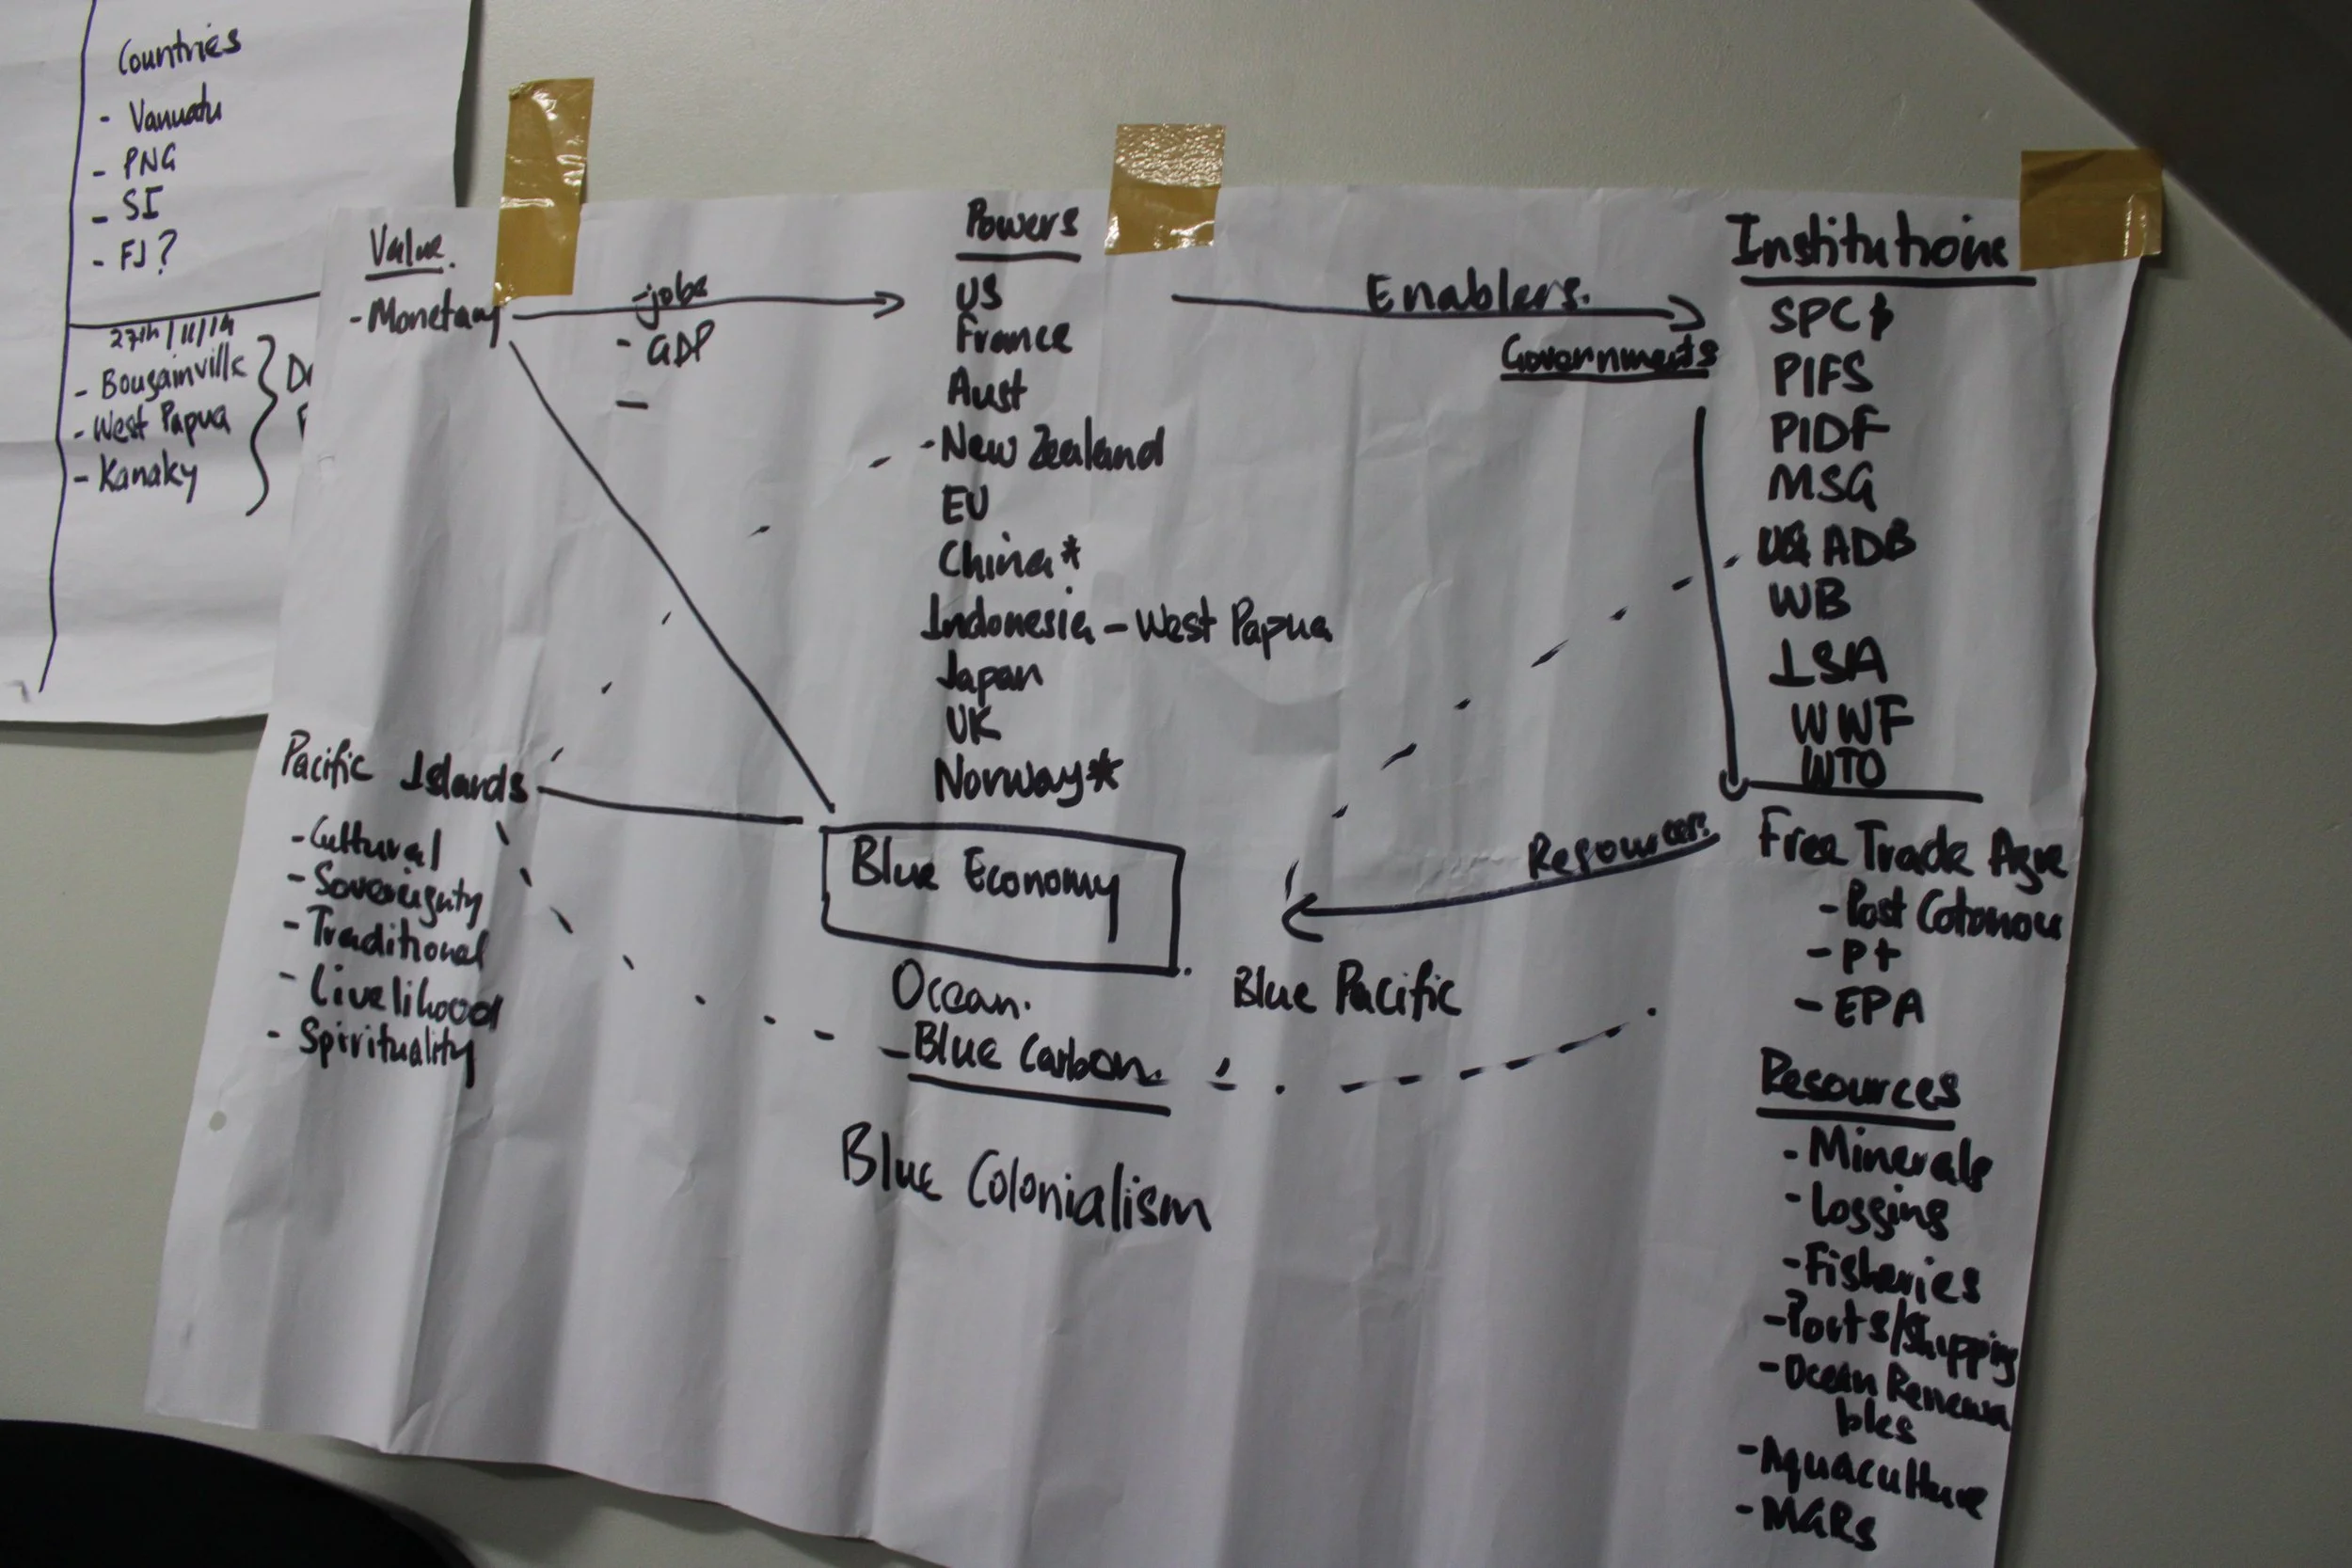 Countries
- Vanuatu
- PNG
- SI
- FJ?
27th/11/19
- Bougainville
- West Papua
- Kanaky
Value.
- Monetary
- jobs
- GDP
-
Pacific Islands
- Cultural
- Sovereignty
- Traditional
- Livelihood
- Spirituality
Powers
US
France
Aust
- New Zealand
EU
China*
Indonesia - West Papua
Japan
UK
Norway*
Blue Economy
Ocean.
- Blue Carbon.
Blue Colonialism
Enablers.
Governments
Resources.
Blue Pacific
Institutions
SPC
PIFS
PIDF
MSG
ADB
WB
ISA
WWF
WTO
Free Trade Agre
- Post Cotonou
- P+
- EPA
Resources
- Minerals
- Logging
- Fisheries
- Ports/Shipping
- Ocean Renewa
bles
- Aquaculture
- MGRs